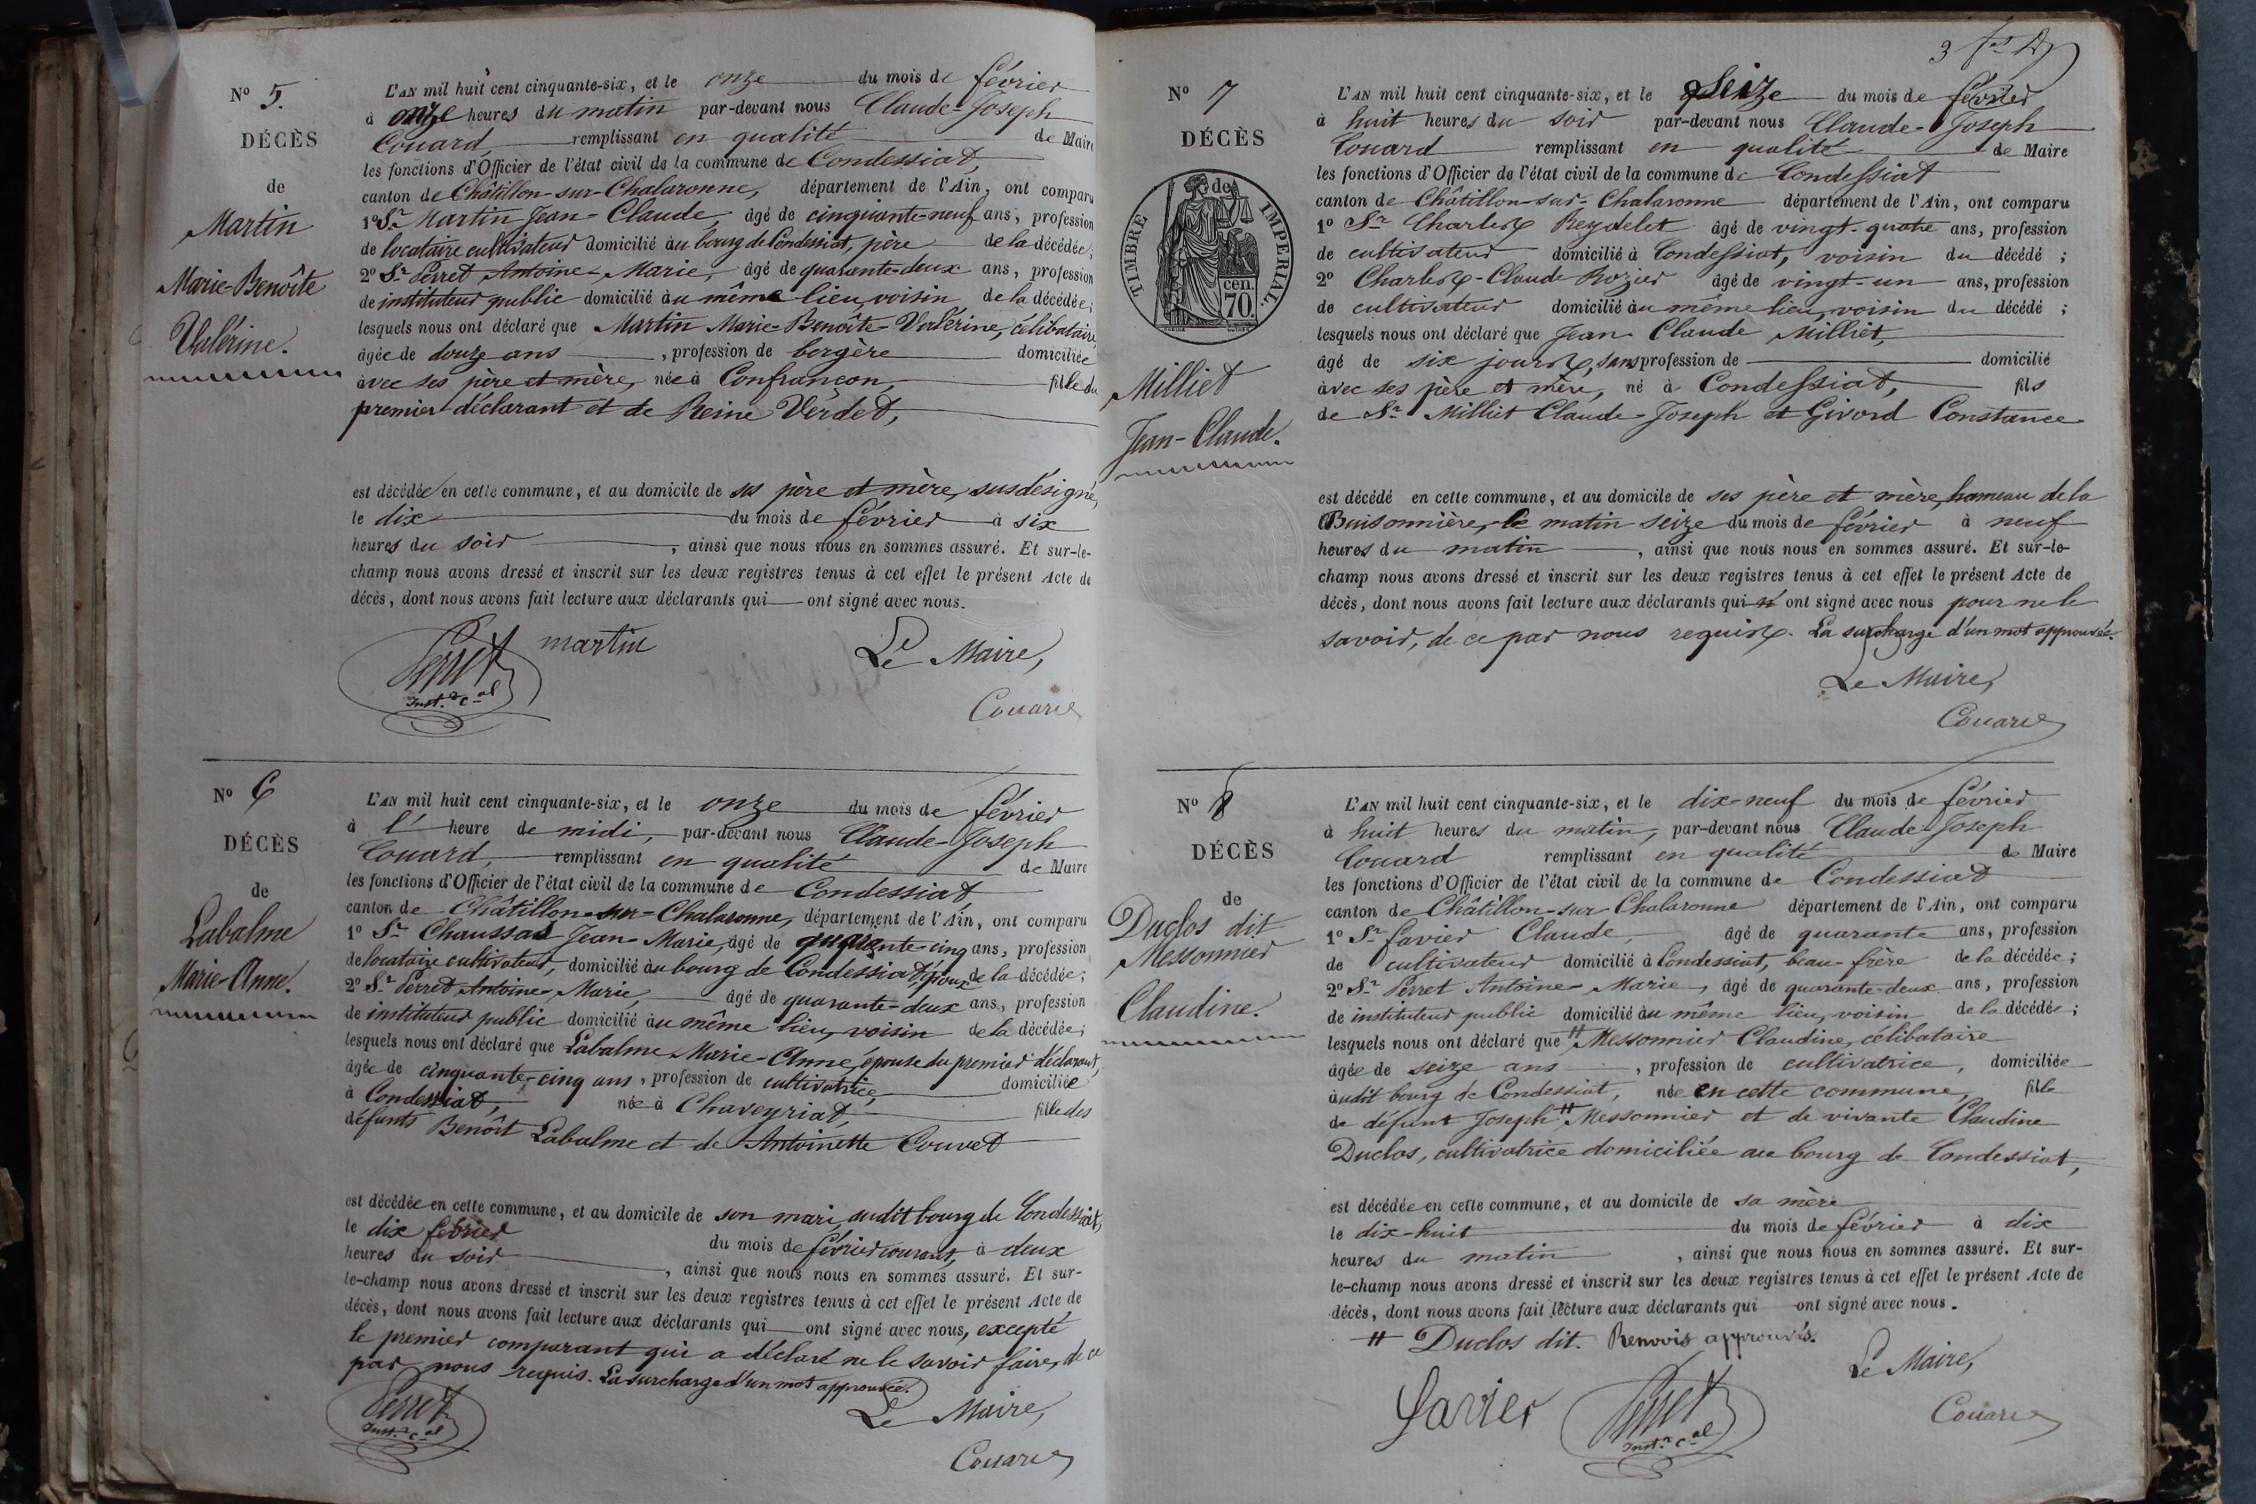 N° 5.
DÉCÈS
de
Martin
Marie-Benoîte
Valérine.
L'AN mil huit cent cinquante-six, et le onze du mois de février
à onze heures du matin par-devant nous Claude-Joseph
Couard remplissant en qualité de Maire
les fonctions d'Officier de l'état civil de la commune de Condessiat,
canton de Châtillon-sur-Chalaronne, département de l'Ain, ont comparu
1° Sr. Martin Jean-Claude âgé de cinquante-neuf ans, profession
de locataire cultivateur domicilié au bourg de Condessiat, père de la décédée;
2° Sr. Perret Antoine-Marie, âgé de quarante-deux ans, profession
de instituteur public domicilié au même lieu, voisin de la décédée;
lesquels nous ont déclaré que Martin Marie-Benoîte-Valérine, célibataire
âgée de douze ans, profession de bergère domiciliée
avec ses père et mère, née à Confrançon, fille du
premier déclarant et de Reine Verdet,
est décédée en cette commune, et au domicile de ses père et mère, susdésigné,
le dix du mois de février à six
heures du soir, ainsi que nous nous en sommes assuré. Et sur-le-
champ nous avons dressé et inscrit sur les deux registres tenus à cet effet le présent Acte de
décès, dont nous avons fait lecture aux déclarants qui ont signé avec nous.
Perret martin Le Maire,
Inst.r c.al
Couard
N° 6
DÉCÈS
de
Labalme
Marie-Anne.
L'AN mil huit cent cinquante-six, et le onze du mois de février
à l' heure de midi, par-devant nous Claude-Joseph
Couard, remplissant en qualité de Maire
les fonctions d'Officier de l'état civil de la commune de Condessiat
canton de Châtillon-sur-Chalaronne, département de l'Ain, ont comparu
1° Sr. Chaussas Jean-Marie, âgé de quarante-cinq ans, profession
de locataire cultivateur, domicilié au bourg de Condessiat, époux de la décédée;
2° Sr. Perret Antoine-Marie, âgé de quarante-deux ans, profession
de instituteur public domicilié au même lieu, voisin de la décédée;
lesquels nous ont déclaré que Labalme Marie-Anne, épouse du premier déclarant,
âgée de cinquante-cinq ans, profession de cultivatrice, domiciliée
à Condessiat, née à Chaveyriat, fille des
défunts Benôit Labalme et de Antoinette Couvet
est décédée en cette commune, et au domicile de son mari, audit bourg de Condessiat,
le dix février du mois de février courant, à deux
heures du soir, ainsi que nous nous en sommes assuré. Et sur-
le-champ nous avons dressé et inscrit sur les deux registres tenus à cet effet le présent Acte de
décès, dont nous avons fait lecture aux déclarants qui ont signé avec nous, excepté
le premier comparant qui a déclaré ne le savoir faire, de ce
par nous requis. La surcharge d'un mot approuvée.
Perret Le Maire,
Inst.r c.al
Couard
3
N° 7
DÉCÈS
de
TIMBRE IMPERIAL.
cen.
70.
Milliet
Jean-Claude.
L'AN mil huit cent cinquante-six, et le seize du mois de février
à huit heures du soir par-devant nous Claude-Joseph
Couard remplissant en qualité de Maire
les fonctions d'Officier de l'état civil de la commune de Condessiat
canton de Châtillon-sur-Chalaronne département de l'Ain, ont comparu
1° Sr. Charles Reydelet âgé de vingt-quatre ans, profession
de cultivateur domicilié à Condessiat, voisin du décédé;
2° Charles-Claude Rozier âgé de vingt-un ans, profession
de cultivateur domicilié au même lieu, voisin du décédé;
lesquels nous ont déclaré que Jean Claude Milliet,
âgé de six jours, sans profession de domicilié
avec ses père et mère, né à Condessiat, fils
de Sr. Milliet Claude-Joseph et Givord Constance
est décédé en cette commune, et au domicile de ses père et mère, hameau de la
Buisonnière, le matin seize du mois de février à neuf
heures du matin, ainsi que nous nous en sommes assuré. Et sur-le-
champ nous avons dressé et inscrit sur les deux registres tenus à cet effet le présent Acte de
décès, dont nous avons fait lecture aux déclarants qui n' ont signé avec nous pour ne le
savoir, de ce par nous requis. La surcharge d'un mot approuvée.
Le Maire,
Couard
N° 8
DÉCÈS
de
Duclos dit
Messonnier
Claudine.
L'AN mil huit cent cinquante-six, et le dix-neuf du mois de février
à huit heures du matin, par-devant nous Claude-Joseph
Couard remplissant en qualité de Maire
les fonctions d'Officier de l'état civil de la commune de Condessiat
canton de Châtillon-sur-Chalaronne département de l'Ain, ont comparu
1° Sr. Favier Claude, âgé de quarante ans, profession
de cultivateur domicilié à Condessiat, beau-frère de la décédée;
2° Sr. Perret Antoine-Marie, âgé de quarante-deux ans, profession
de instituteur public domicilié au même lieu, voisin de la décédée;
lesquels nous ont déclaré que # Messonnier Claudine, célibataire
âgée de seize ans, profession de cultivatrice, domiciliée
audit bourg de Condessiat, née en cette commune, fille
de défunt Joseph # Messonnier et de vivante Claudine
Duclos, cultivatrice domiciliée au bourg de Condessiat,
est décédée en cette commune, et au domicile de sa mère
le dix-huit du mois de février à dix
heures du matin, ainsi que nous nous en sommes assuré. Et sur-
le-champ nous avons dressé et inscrit sur les deux registres tenus à cet effet le présent Acte de
décès, dont nous avons fait lecture aux déclarants qui ont signé avec nous.
# Duclos dit. Renvois approuvés.
Le Maire,
Favier Perret
Inst.r c.al
Couard